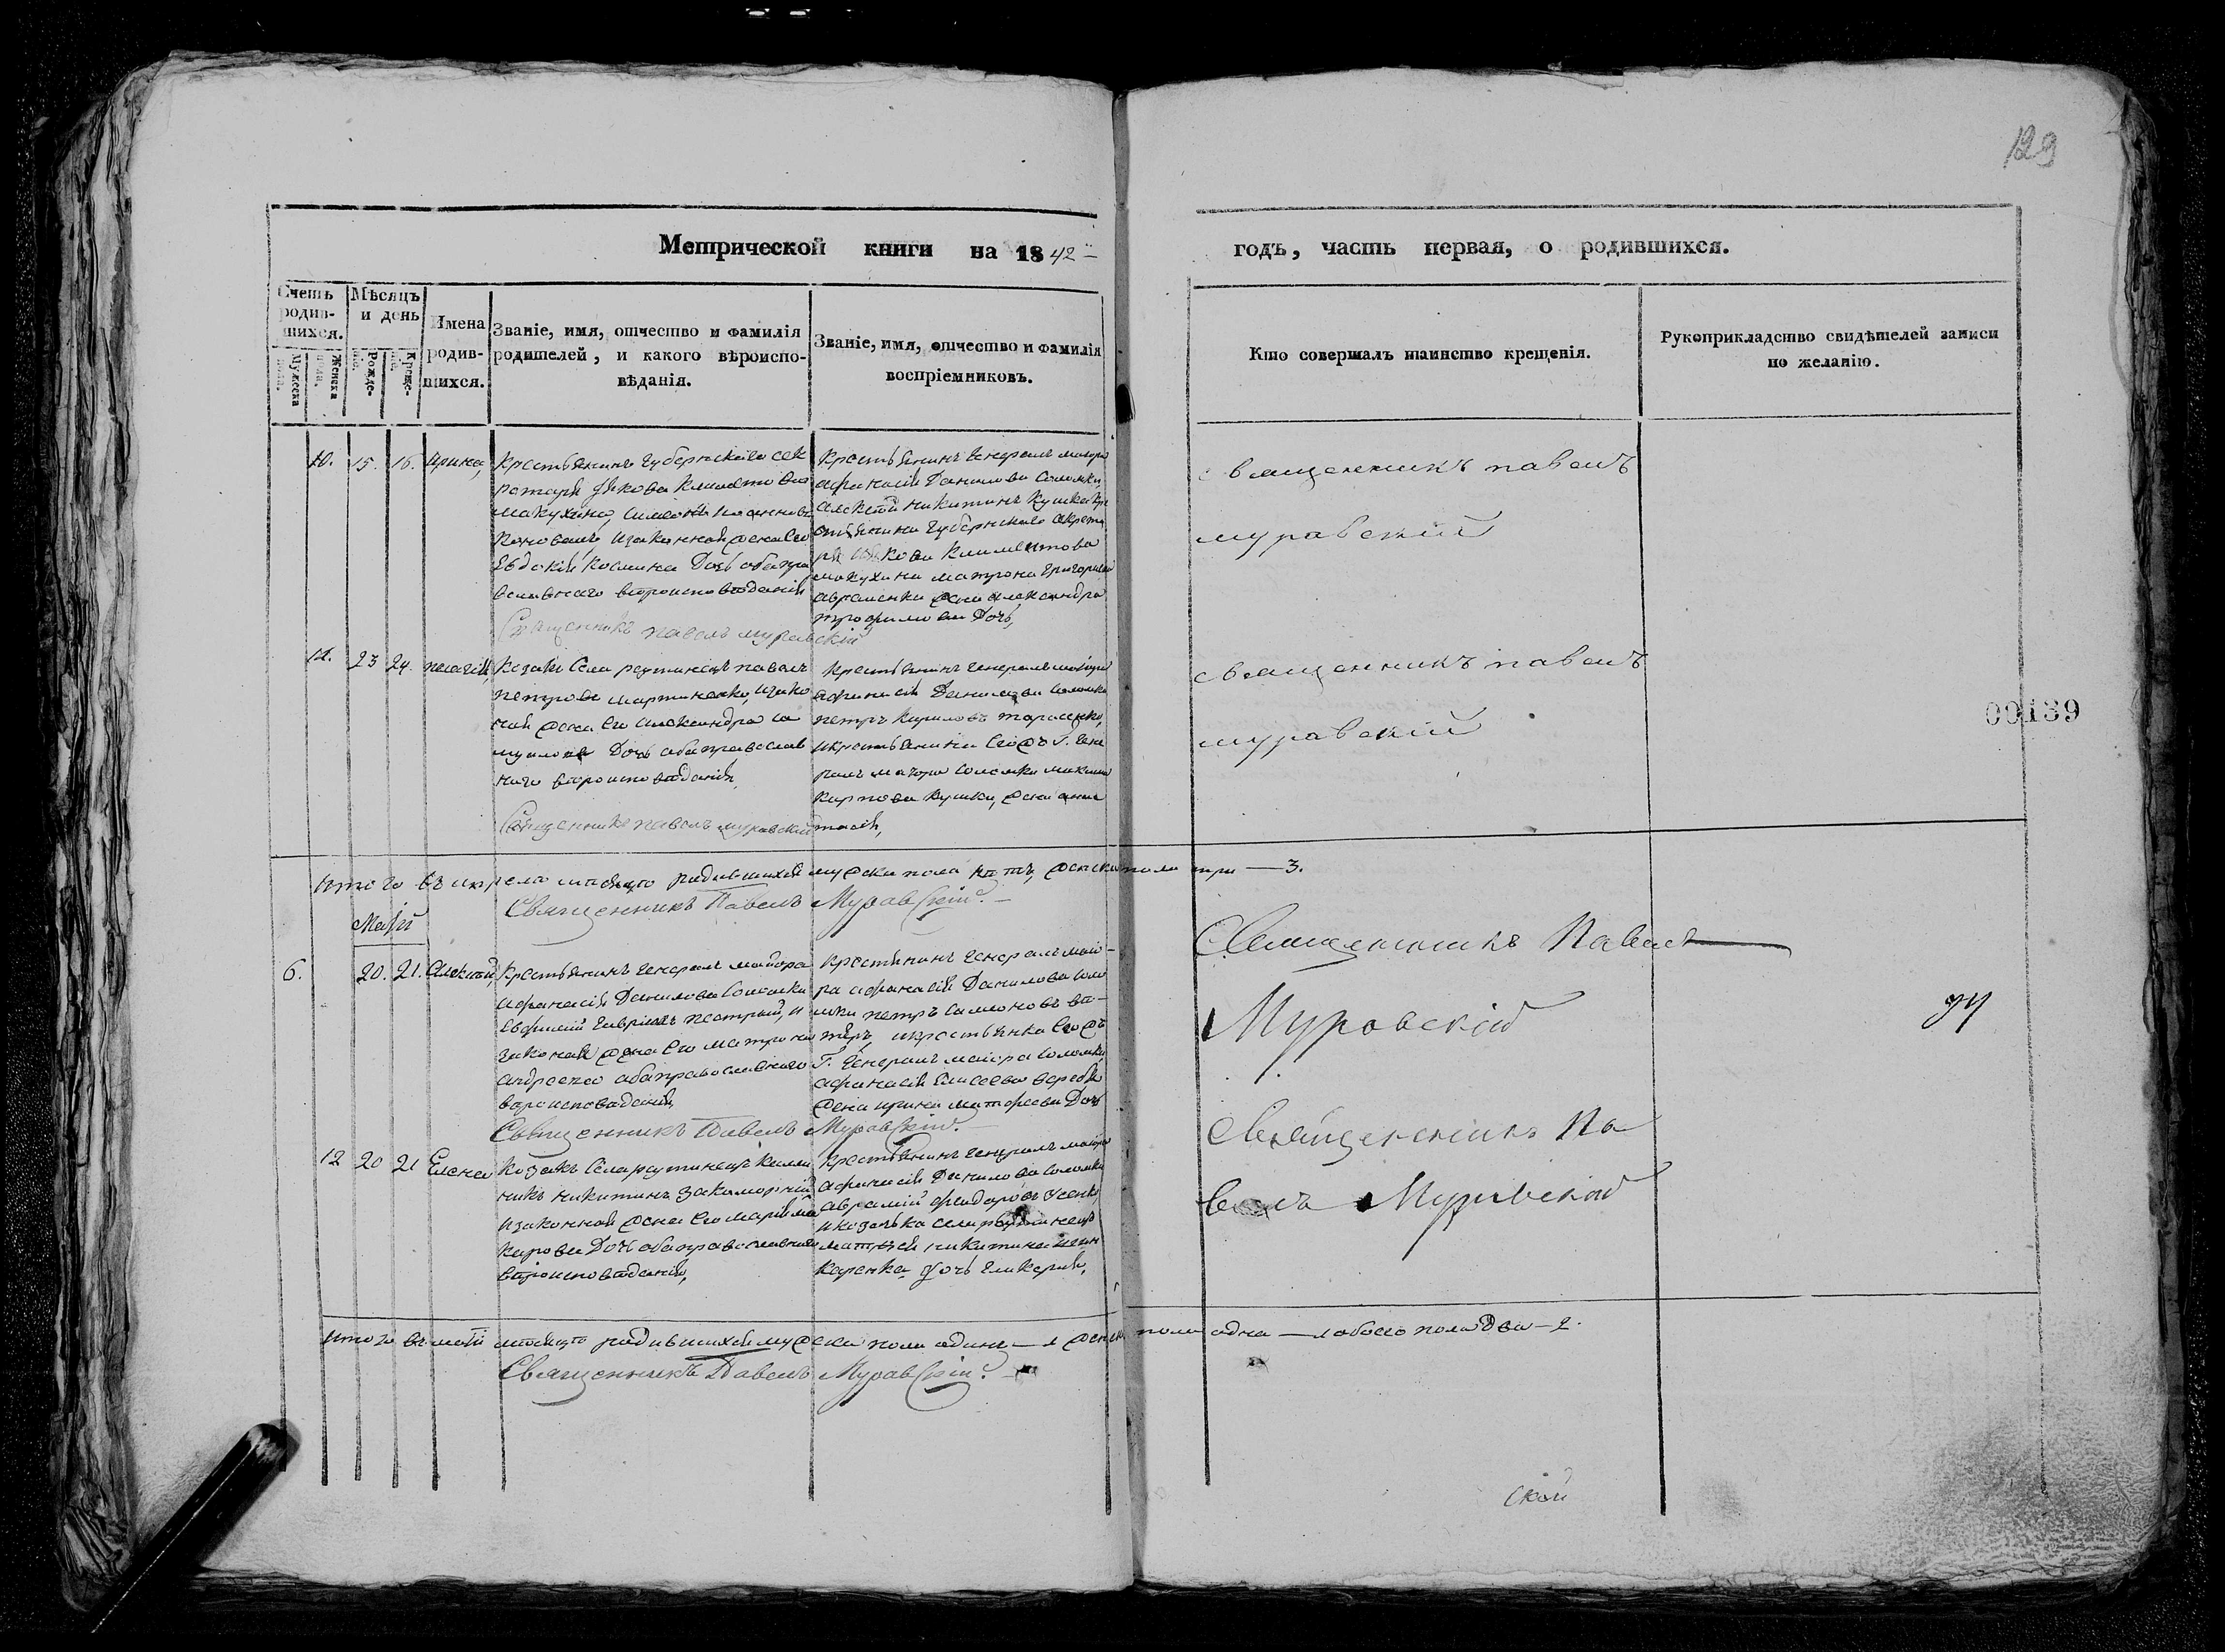 129
Метрической книги на 1842
годъ, часть первая, о родившихся.
Счетъ родив-шихся.
Мѣсяцъ и день
Имена родив-шихся.
Званіе, имя, отчество и фамилія родителей, и какого вѣроиспо-вѣданія.
Званіе, имя, отчество и фамилія воспріемниковъ.
Кто совершалъ таинство крещенія.
Рукоприкладство свидѣтелей записи по желанію.
Мужеска пола.
Женска пола.
Рожде-нія.
Креще-нія.
10. 15. 16. Ирина,
Крестьянинъ Губернскаго сек
ретаря Якова Климентова
макухина,
законная жена его
Евдокія Космина Дочь оба пра
вославнаго вѣроисповѣданія
Священникъ павелъ муравскій
Крестьянинъ Генералъ маіора
афанасія Данилова Соломки,
алексѣй никитинъ Кушка кре
стьянина Губернскаго секрета
ря Якова Климентова
макухина матрона Григорія
авраменка жена александра
трофимова Дочь,
священникъ павелъ
муравскій
11. 23 24. пелагія,
Козакъ Села рсутинецъ павелъ
петровъ мартиненко, и зако
ная жена его александра са
муилова Дочь оба православ
наго вѣроисповѣданія,
Священникъ павелъ муравскій
Крестьянинъ Генералъ маіора
афанасія Данилова Соломки
петръ Кириловъ тарасенко,
и крестьянина его жъ Г. Гене
ралъ маіора Соломки максима
карпова кушки, жена анас
тасія,
священникъ павелъ
муравскій
00139
итого въ апрелѣ мѣсяцѣ родившихся мужеска пола пять, женска пола три — 3.
Священникъ Павелъ Муравскій.
Май
6. 20. 21. Алексѣй,
Крестьянинъ Генералъ маіора
афанасія Данилова Соломки
Евфимій Гавріилъ пестрый, и
законая жена его матрона
андреева оба православнаго
вѣроисповѣданія,
Священникъ Павелъ Муравскій.
Крестянинъ Генералъ маіо-
ра афанасія Данилова Соло
мки петръ Самсоновъ
и крестьянка его жъ
Г. Генералъ маіора Соломки,
афанасія Елисеева
жена ирина матфеева Дочь
Священникъ Павелъ
Муровскій
12 20 21 Елена
Козакъ Села рсутинецъ
никъ никитинъ закаморній
и законная жена его марія ма
карова Дочь оба православнаго
вѣроисповѣданія,
Крестьянинъ Генералъ маіора
афанасія Данилова Соломки
аврамій федоровъ Усенко
и козачка села рсутинецъ
матвѣя никитина
каренка дочь гликерія,
Священникъ Па
велъ Муравскій
итого въ маѣ мѣсяцѣ родившихся мужеска пола одинъ — 1 женска пола одна — а обоего пола два — 2.
Священникъ Павелъ Муравскій.
скій